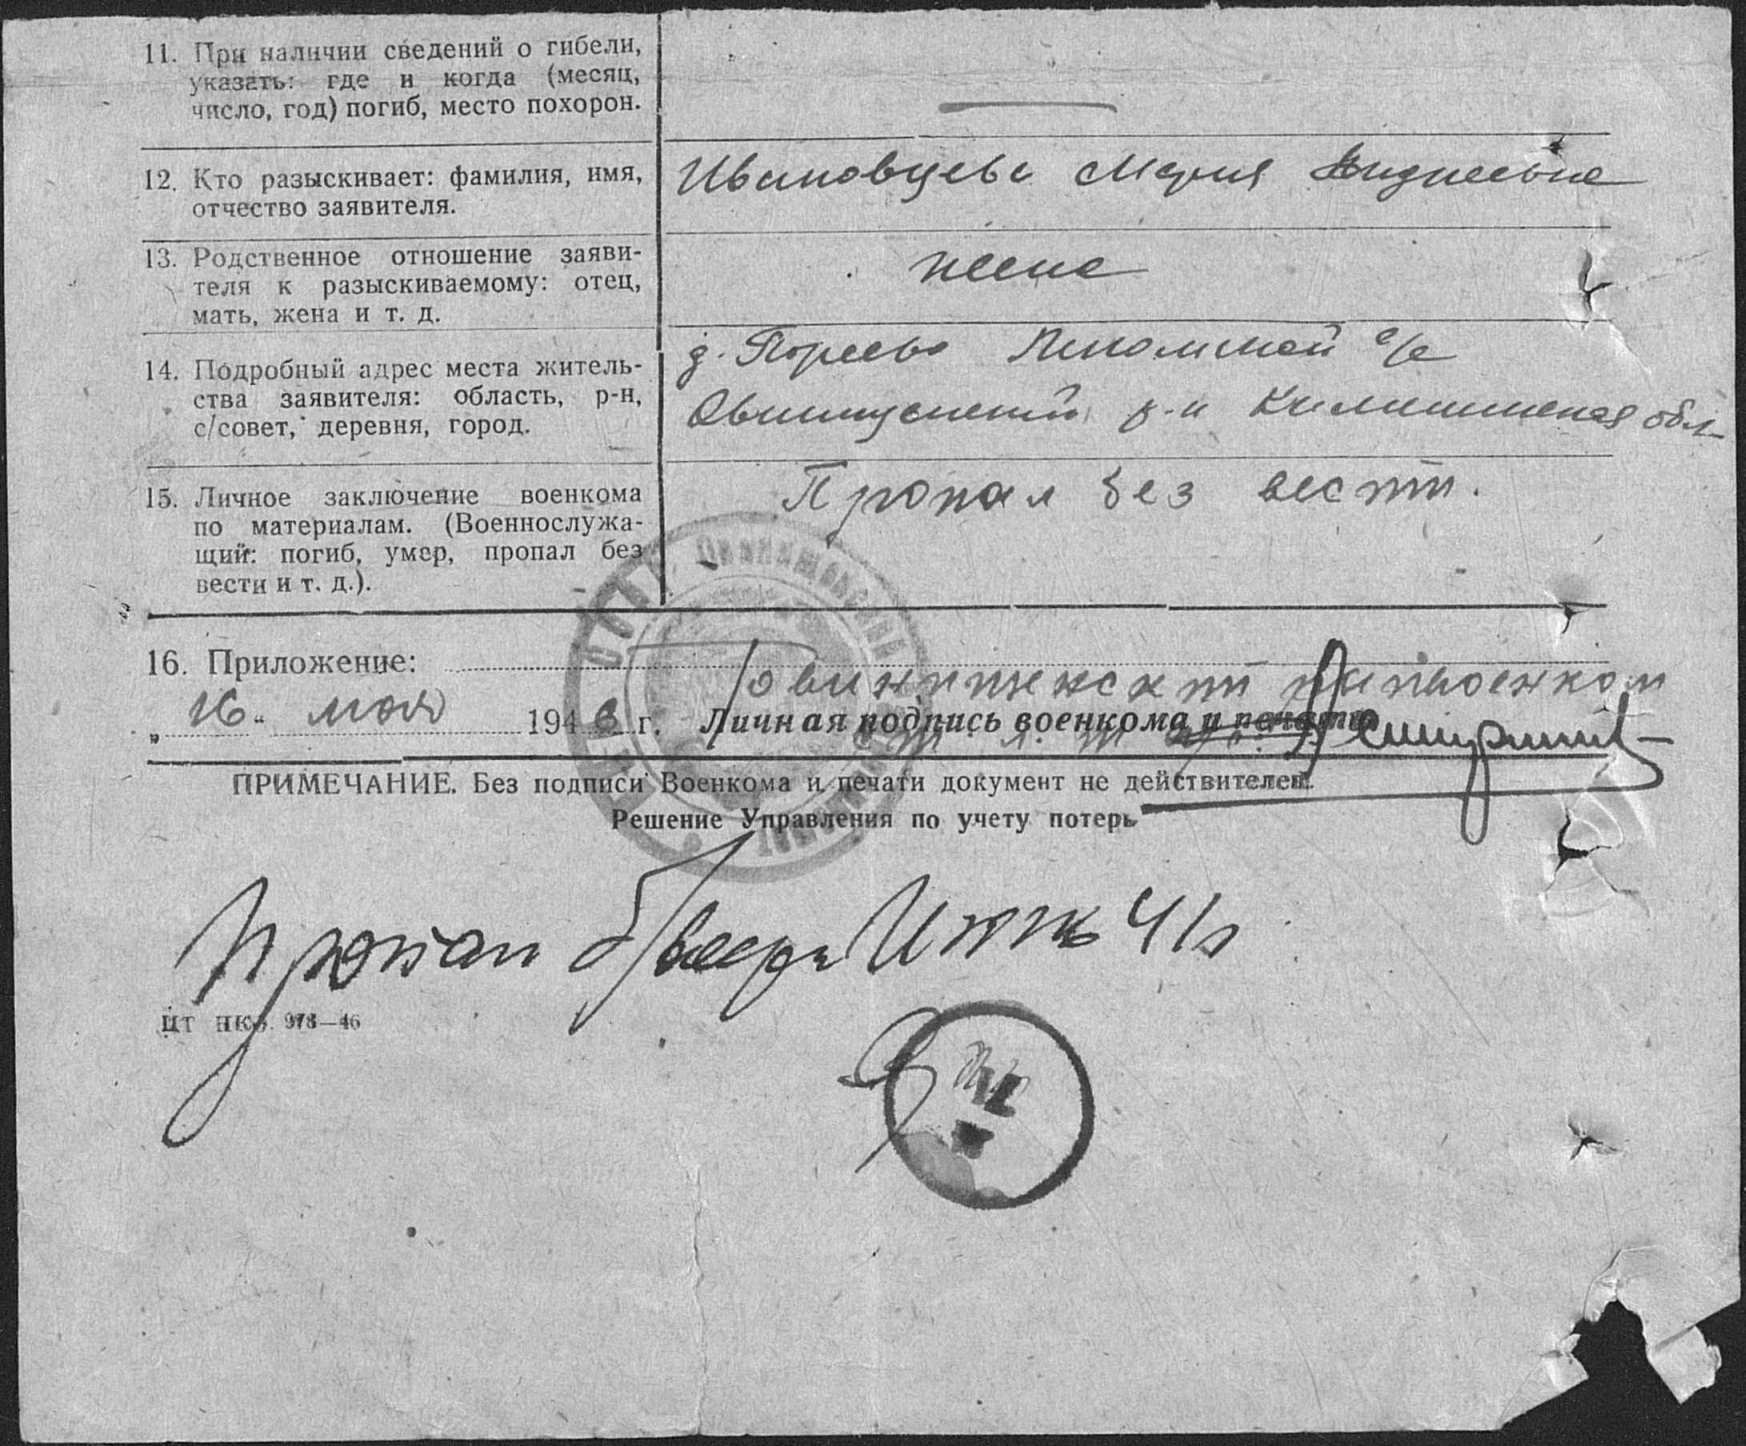 11. При наличии сведений о гибели,
указать: где и когда (месяц,
число, год) погиб, место похорон.
12. Кто разыскивает: фамилия, имя,
отчество заявителя.
Ивановцева Мария
13. Родственное отношение заяви-
теля к разыскиваемому: отец,
мать, жена и т. д.
жена
14. Подробный адрес места житель-
ства заявителя: область, р-н,
с/совет, деревня, город.
д. с/с
Овинищенский р-н Калининская обл
15. Личное заключение военкома
по материалам. (Военнослужа-
щий: погиб, умер, пропал без
вести и т. д.).
Пропал без вести.
16. Приложение:
Овинищенский райвоенком
„16“ мая 1946 г. Личная подпись военкома и печать
ПРИМЕЧАНИЕ. Без подписи Военкома и печати документ не действителен.
Решение Управления по учету потерь
Пропал б/вести 41г
ЦТ НКО 978—46